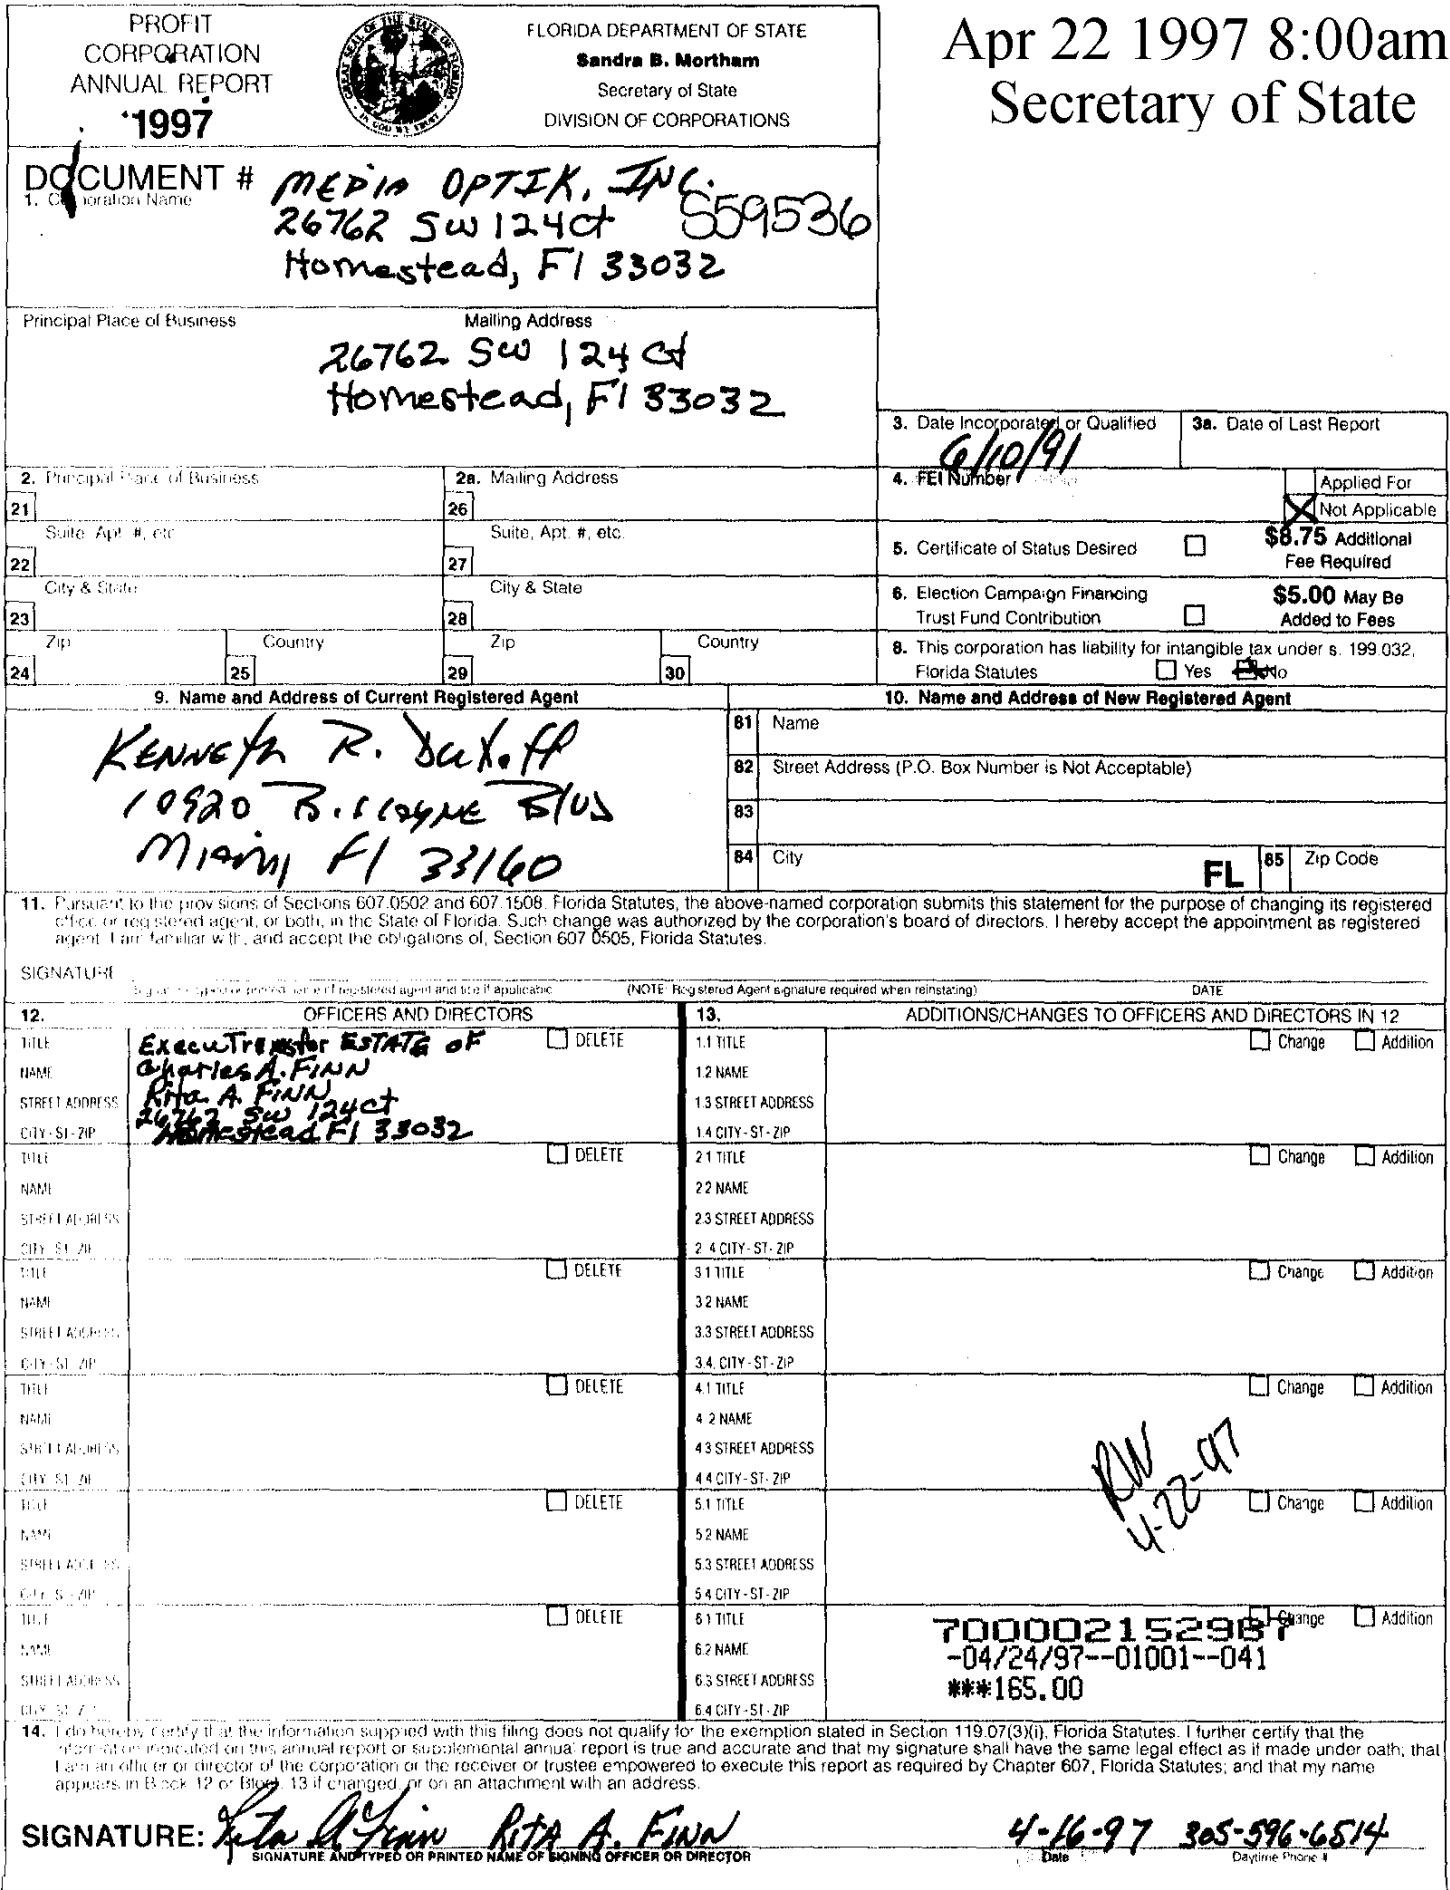 PROFIT
CORPORATION
ANNUAL REPORT
1997
GREAT SEAL OF THE STATE OF FLORIDA
IN GOD WE TRUST
FLORIDA DEPARTMENT OF STATE
Sandra B. Mortham
Secretary of State
DIVISION OF CORPORATIONS
Apr 22 1997 8:00am
Secretary of State
DOCUMENT #
1. Corporation Name
MEDIA OPTIK, INC.
S59536
26762 SW 124 Ct
Homestead, Fl 33032
Principal Place of Business
Mailing Address
26762 SW 124 Ct
Homestead, Fl 33032
3. Date Incorporated or Qualified
6/10/91
3a. Date of Last Report
2. Principal Place of Business
2a. Mailing Address
4. FEI Number
Applied For
Not Applicable
21
26
Suite, Apt. #, etc.
Suite, Apt. #, etc.
5. Certificate of Status Desired
$8.75 Additional
Fee Required
22
27
City & State
City & State
6. Election Campaign Financing
Trust Fund Contribution
$5.00 May Be
Added to Fees
23
28
Zip
Country
Zip
Country
8. This corporation has liability for intangible tax under s. 199.032,
Florida Statutes
Yes
No
24
25
29
30
9. Name and Address of Current Registered Agent
10. Name and Address of New Registered Agent
KENNETH R. Dukoff
10920 Biscayne Blvd
Miami Fl 33160
81 Name
82 Street Address (P.O. Box Number is Not Acceptable)
83
84 City
FL
85 Zip Code
11. Pursuant to the provisions of Sections 607.0502 and 607.1508, Florida Statutes, the above-named corporation submits this statement for the purpose of changing its registered
office or registered agent, or both, in the State of Florida. Such change was authorized by the corporation's board of directors. I hereby accept the appointment as registered
agent. I am familiar with, and accept the obligations of, Section 607.0505, Florida Statutes.
SIGNATURE
Signature, typed or printed name of registered agent and title if applicable
(NOTE: Registered Agent signature required when reinstating)
DATE
12. OFFICERS AND DIRECTORS
13. ADDITIONS/CHANGES TO OFFICERS AND DIRECTORS IN 12
TITLE
NAME
STREET ADDRESS
CITY-ST-ZIP
for ESTATE OF
Charles A. FINN
Rita A. FINN
26762 SW 124 ct
Homestead Fl 33032
DELETE
1.1 TITLE
1.2 NAME
1.3 STREET ADDRESS
1.4 CITY-ST-ZIP
Change
Addition
TITLE
NAME
STREET ADDRESS
CITY-ST-ZIP
DELETE
2.1 TITLE
2.2 NAME
2.3 STREET ADDRESS
2.4 CITY-ST-ZIP
Change
Addition
TITLE
NAME
STREET ADDRESS
CITY-ST-ZIP
DELETE
3.1 TITLE
3.2 NAME
3.3 STREET ADDRESS
3.4. CITY-ST-ZIP
Change
Addition
TITLE
NAME
STREET ADDRESS
CITY-ST-ZIP
DELETE
4.1 TITLE
4.2 NAME
4.3 STREET ADDRESS
4.4 CITY-ST-ZIP
Change
Addition
RW
4-22-97
TITLE
NAME
STREET ADDRESS
CITY-ST-ZIP
DELETE
5.1 TITLE
5.2 NAME
5.3 STREET ADDRESS
5.4 CITY-ST-ZIP
Change
Addition
TITLE
NAME
STREET ADDRESS
CITY-ST-ZIP
DELETE
6.1 TITLE
6.2 NAME
6.3 STREET ADDRESS
6.4 CITY-ST-ZIP
Change
Addition
700002152987
-04/24/97--01001--041
***165.00
14. I do hereby certify that the information supplied with this filing does not qualify for the exemption stated in Section 119.07(3)(i), Florida Statutes. I further certify that the
information indicated on this annual report or supplemental annual report is true and accurate and that my signature shall have the same legal effect as if made under oath; that
I am an officer or director of the corporation or the receiver or trustee empowered to execute this report as required by Chapter 607, Florida Statutes; and that my name
appears in Block 12 or Block 13 if changed, or on an attachment with an address.
SIGNATURE: Rita A Finn RITA A. FINN
4-16-97 305-596-6514
SIGNATURE AND TYPED OR PRINTED NAME OF SIGNING OFFICER OR DIRECTOR
Date
Daytime Phone #